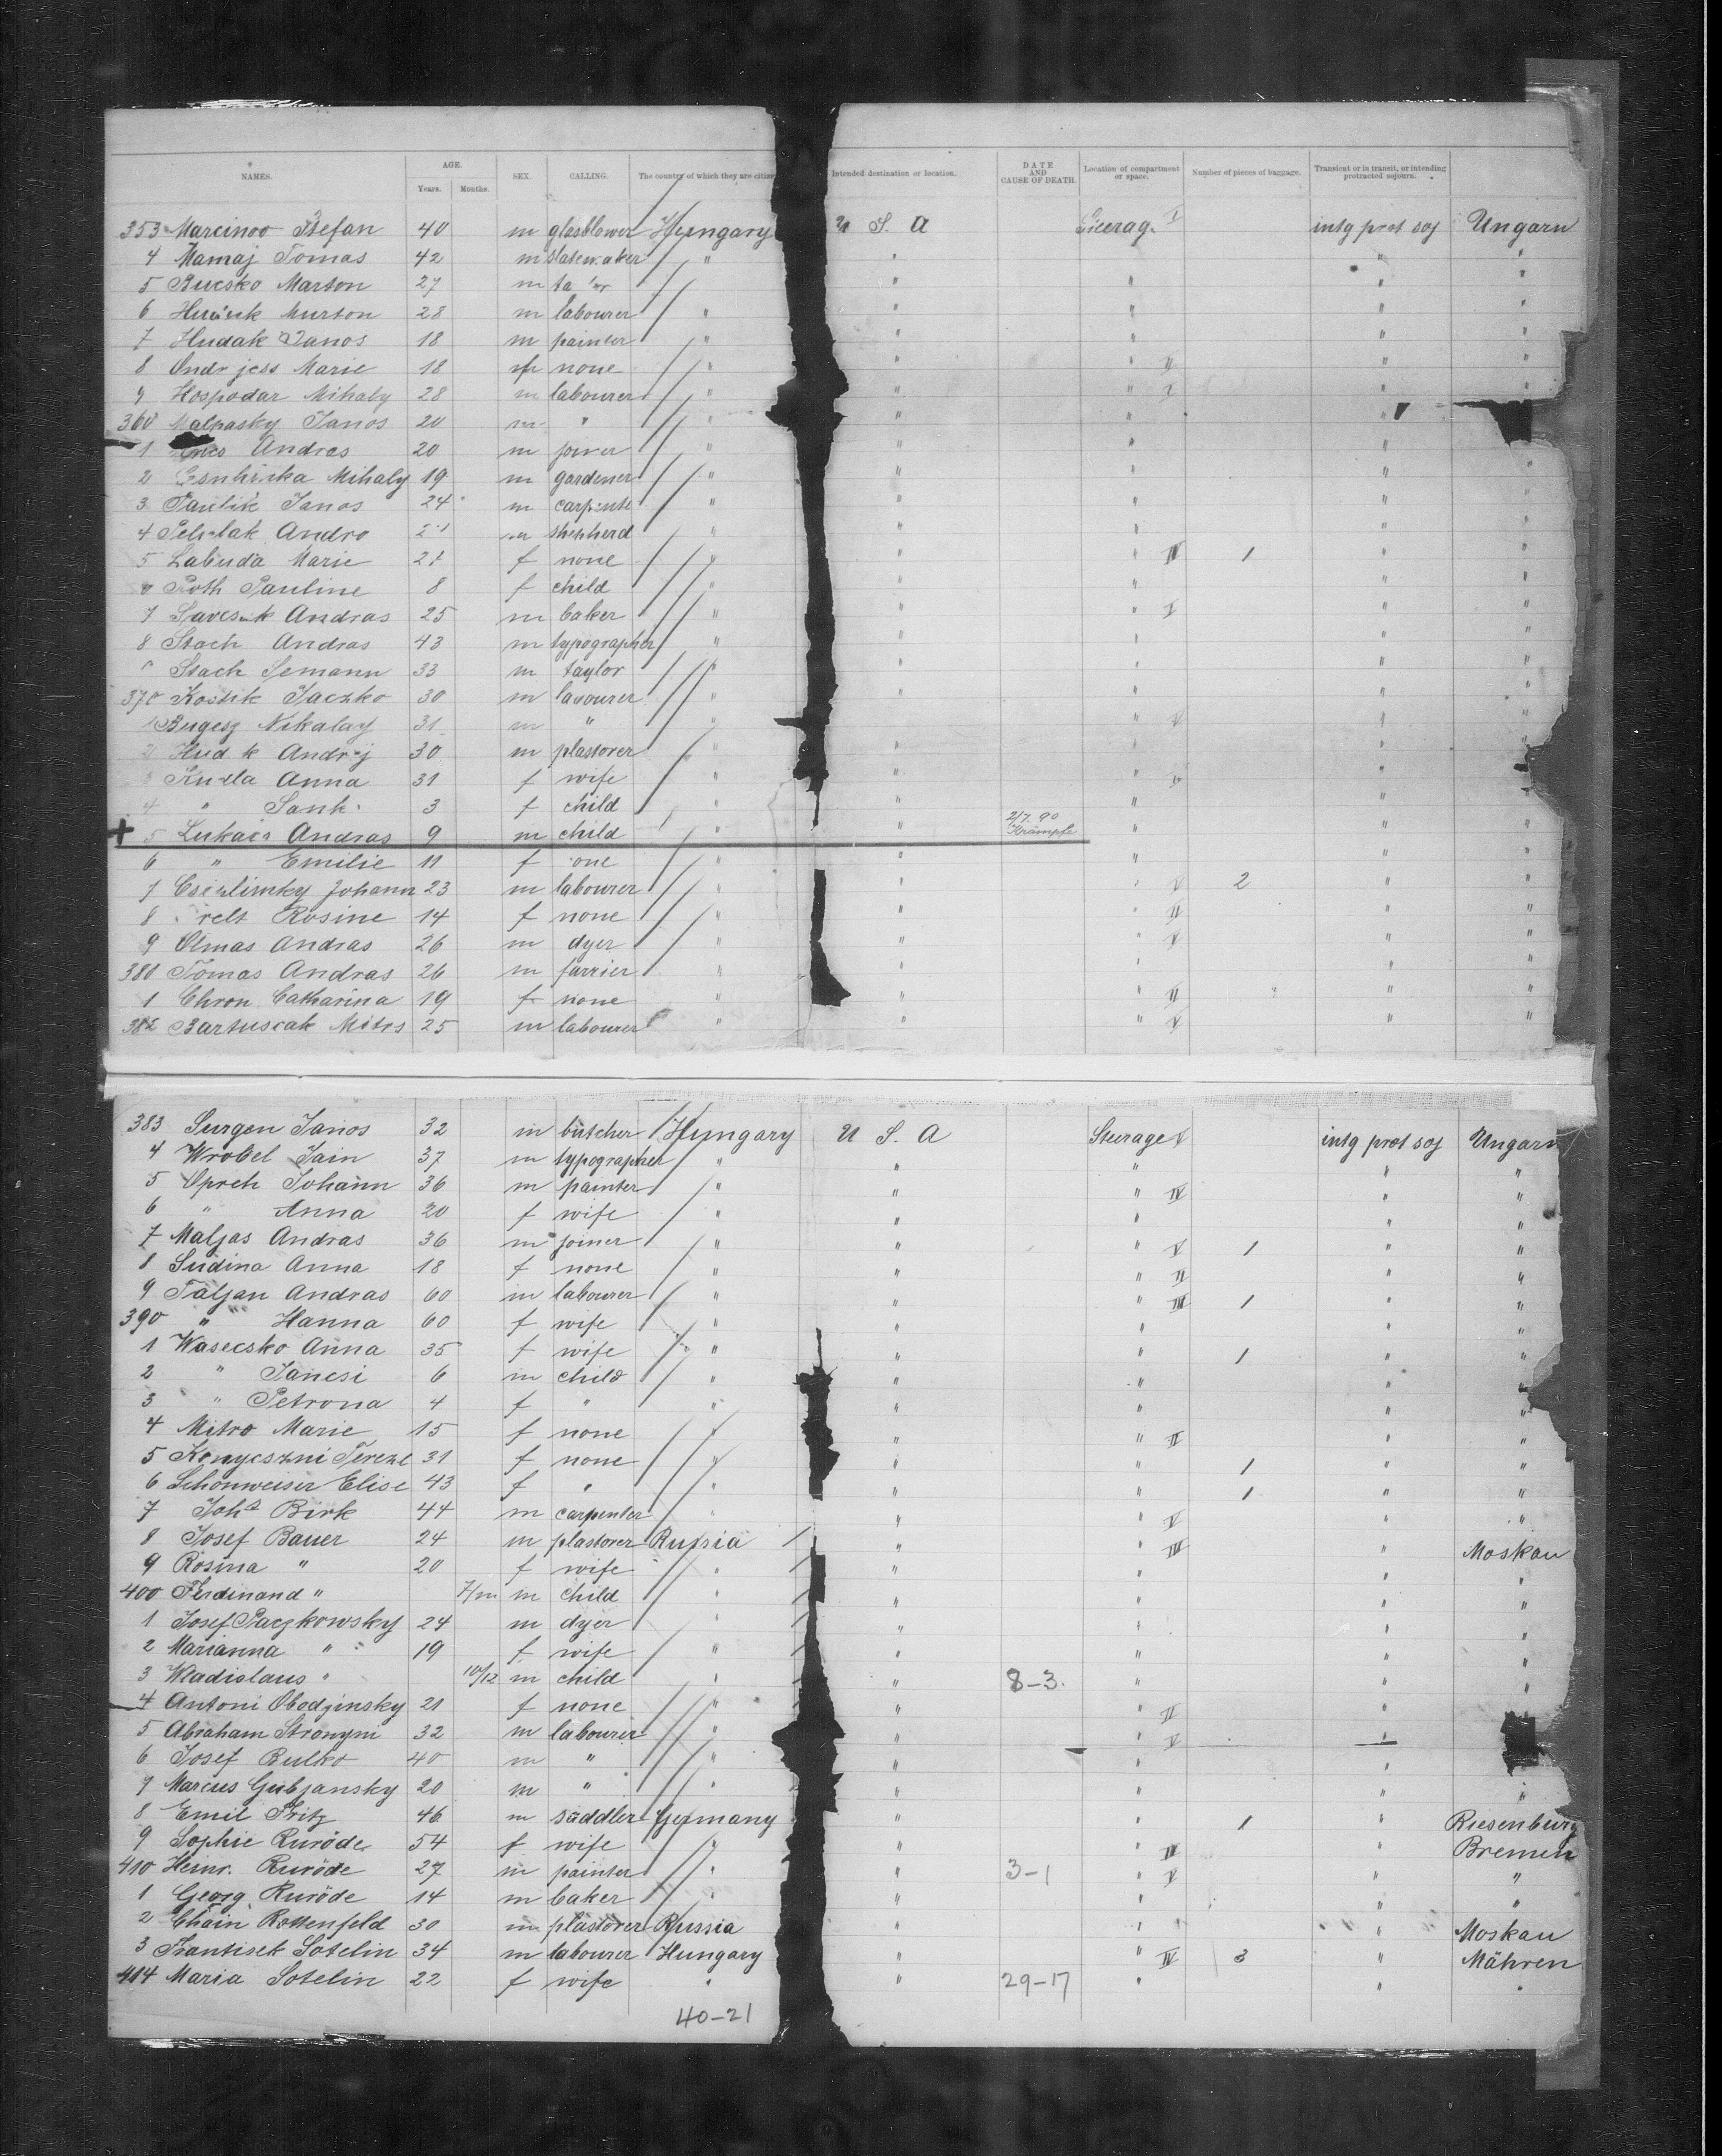 NAMES. AGE. Years. Months. SEX. CALLING. The country of which they are citizens Intended destination or location. DATE AND CAUSE OF DEATH. Location of compartment or space. Number of pieces of baggage. Transient or in transit, or intending protracted sojourn.
353 Marcinoo Stefan 40 m glasblower Hungary U S. A I intg prot soj Ungarn
4 Mamaj Tomas 42 m " " " "
5 Rucsko Marton 27 m " " " "
6 28 m labourer " " " " "
7 Hudak Janos 18 m painter " " " " "
8 Marie 18 f none " " " II " "
9 Hospodar Mihaly 28 m labourer " " " I " "
360 Malpasky Janos 20 m " " " " "
1 Andras 20 m joiner " " " " "
2 Mihaly 19 m gardener " " " " "
3 Paulik Janos 24 m " " " " "
4 Andro m shepherd " " " " "
5 Labuda Marie f none " " " II 1 " "
Poth Pauline 8 f child " " " " "
7 Andras 25 m baker " " " I " "
8 Stach Andras 43 m typographer " " " " "
Stach Semann 33 m taylor " " " " "
370 Kostik Jaczko 30 m labourer " " " " "
Bugesz Nikalay 31 m " " " " V " "
2 30 m plastorer " " " " "
Anna 31 f wife " " " " "
4 " 3 f child " " " " "
5 Andras 9 m child " " 2/7. 90 Krämpfe " " "
6 " Emilie 11 f " " " " "
7 Johann 23 m labourer " " " V 2 " "
8 Rosine 14 f none " " " II " "
9 Olmas Andras 26 m dyer " " " V " "
380 Tomas Andras 26 m farrier " " " " "
1 Chron Catharina 19 f none " " " II " "
382 Bartuscak Mitrs 25 m labourer " " " V " "
383 Surgen Janos 32 m butcher Hungary U S. A Steerage V intg prot soj Ungarn
4 Wrobel Jain 37 m typographer " " " " "
5 Oprch Johann 36 m painter " " " IV " "
6 " Anna 20 f wife " " " " "
7 Maljas Andras 36 m joiner " " " V 1 " "
8 Sudina Anna 18 f none " " " II " "
9 Taljan Andras 60 m labourer " " " III 1 " "
390 " Hanna 60 f wife " " " " "
1 Wasecsko Anna 35 f wife " " " 1 " "
2 " Jancsi 6 m child " " " " "
3 " Petrona 4 f " " " " " "
4 Mitro Marie 15 f none " " " II " "
5 Konycszni Tereze 31 f none " " " 1 " "
6 Schönweiser Elise 43 f " " " " 1 " "
7 Joha Birk 44 m carpenter " " " V " "
8 Josef Bauer 24 m plastorer Russia " " III " Moskau
9 Rosina " 20 f wife " " " " "
400 Ferdinand " 7/m m child " " " " "
1 Josef Paczkowsky 24 m dyer " " " " "
2 Marianna " 19 f wife " " " " "
3 Wladislaus " 10/12 m child " " 8-3. " " "
4 Antoni Obodzinsky 21 f none " " " II " "
5 Abraham Stronymi 32 m labourer " " " V "
6 Josef Rulko 40 m " " " " " "
7 Marcus Gubjansky 20 m " " " " " "
8 Emil Fritz 46 m saddler Germany " " 1 " Riesenburg
9 Sophie Ruröde 54 f wife " " " III " Bremen
410 Heinr. Ruröde 27 m painter " " 3-1 " V " "
1 Georg Ruröde 14 m baker " " " " "
2 Chain Rottenfeld 30 m plastorer Russia " " " Moskau
3 Frantisek Sotelin 34 m labourer Hungary " " IV 3 " Mähren
414 Maria Sotelin 22 f wife " " 29-17 " " "
40-21